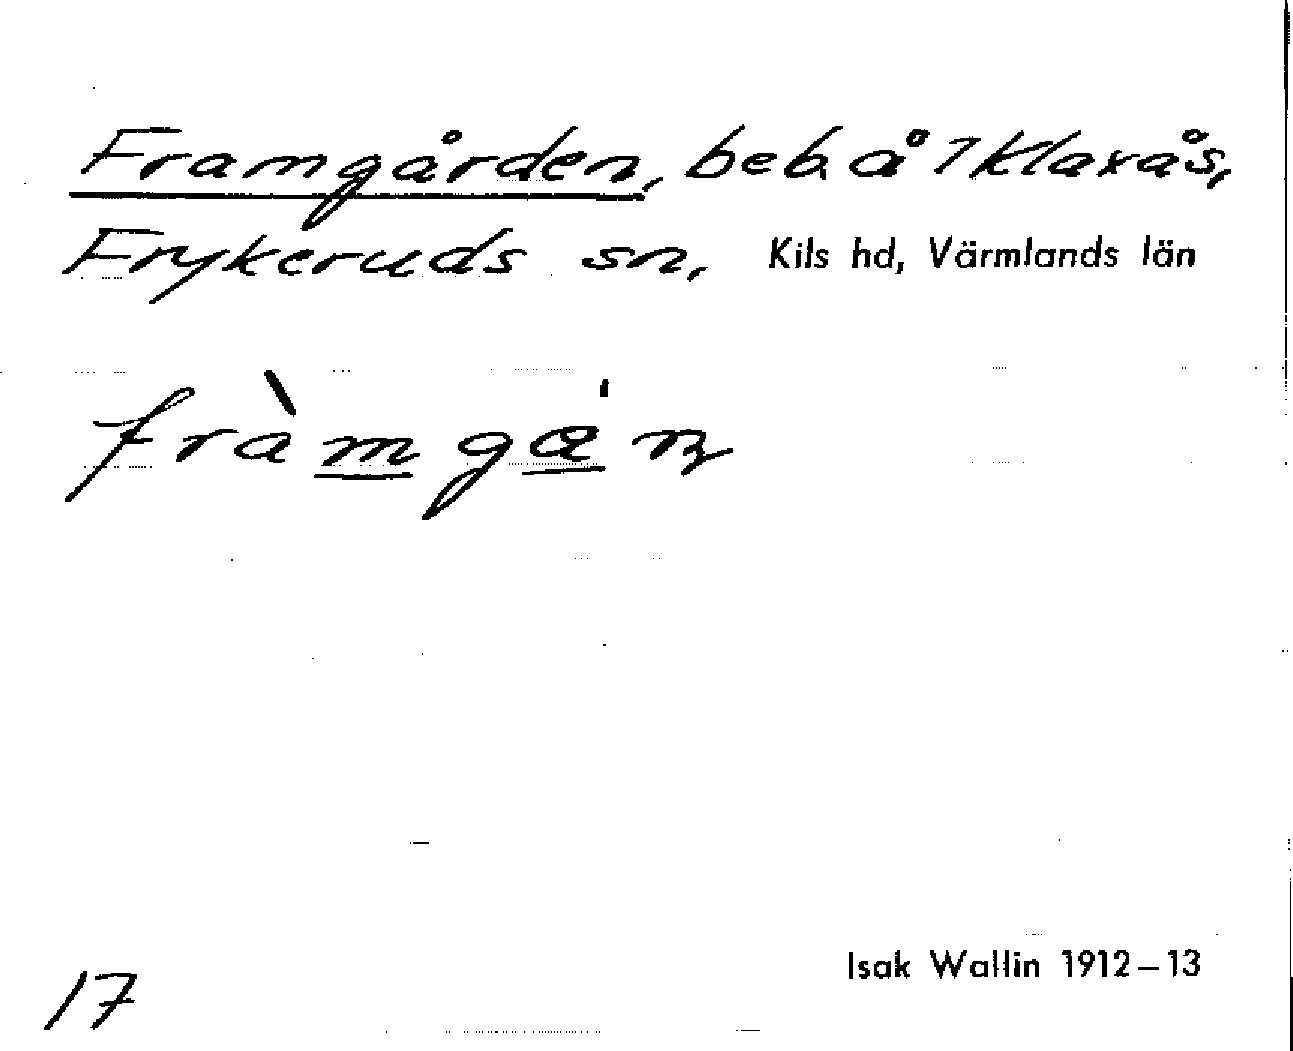 Framgården, beb. å 1 Klaxås,
Frykeruds sn, Kils hd, Värmlands län
Isak Wallin 1912–13
17